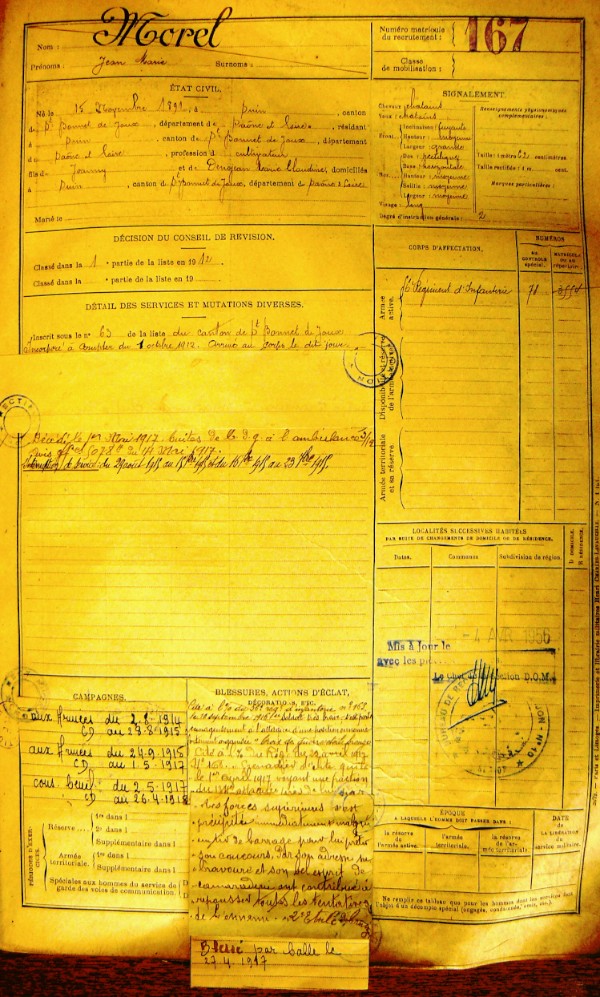 Nom : Morel
Prénoms : Jean Marie Surnoms :
Numéro matricule
du recrutement : 167
Classe
de mobilisation :
ÉTAT CIVIL.
Né le 15 Novembre 1891, à Suin, canton
de St Bonnet de Joux, département de Saône et Loire, résidant
à Suin, canton de St Bonnet de Joux, département
de Saône et Loire, profession de cultivateur
fils de Joanny et de Claudine, domiciliés
à Suin, canton de St Bonnet de Joux, département de Saône et Loire
Marié le
SIGNALEMENT.
Cheveux châtains
Yeux châtains
Front
Inclinaison
Hauteur : moyenne
Largeur : grande
Nez
Dos : rectiligne
Base : horizontale
Hauteur : moyenne
Saillie : moyenne
Largeur : moyenne
Visage : long
Renseignements physionomiques
complémentaires :
Taille : 1 mètre 62 centimètres
Taille rectifiée : 1 m. cent.
Marques particulières :
Degré d'instruction générale : 2
DÉCISION DU CONSEIL DE REVISION.
Classé dans la 1 e partie de la liste en 1912
Classé dans la e partie de la liste en 19
DÉTAIL DES SERVICES ET MUTATIONS DIVERSES.
Inscrit sous le n° 63 de la liste du canton de St Bonnet de Joux
Incorporé à compter du 1 octobre 1912. Arrivé au corps le dit jour
Décédé le 1er Mai 1917. Suites de b. d. g. à l'ambulance 3/
avis off el 5078 du 14 Mai 1917.
Interruption de service du 29 août 1915 au 1915 et du 1915 au 23 1915.
CORPS D'AFFECTATION.
NUMÉROS
AU
CONTROLE
spécial.
MATRICULE
OU AU
répertoire.
Armée
active.
Régiment d'Infanterie
Disponibilité et réserve
de l'armée active.
Armée territoriale
et sa réserve.
LOCALITÉS SUCCESSIVES HABITÉES
PAR SUITE DE CHANGEMENTS DE DOMICILE OU DE RÉSIDENCE.
Dates.
Communes
Subdivision de région.
D. DOMICILE.
R. RÉSIDENCE.
-4 AVR. 1956
Mis à Jour le
avec les
Le Chef de Section D.O.M.
CAMPAGNES.
aux Armées du 2.8.1914
CD au 29.8.1915
aux Armées du 24.9.1915
CD au 1.5.1917
du 2.5.1917
CD au 26.4.1918
PÉRIODES D'EXERCICES.
Réserve
1re dans l
2e dans l
Supplémentaire dans l
Armée
territoriale.
1re dans l
Supplémentaire dans l
Spéciales aux hommes du service de
garde des voies de communication.
BLESSURES, ACTIONS D'ÉCLAT,
DÉCORATIONS, ETC.
Cité à l'o. du rég. d'infanterie n° 162
le 18 septembre 1916
à l'attaque d'une position ennemie
Croix de guerre étoile bronze
Cité à l'O. du Rég. du 29 avril 1917
N° Grenadier d'élite qui
le 1er avril 1917 voyant une fraction
du attaquée
des forces supérieures s'est
précipité immédiatement malgré
un tir de barrage pour lui porter
son concours. Par son adresse sa
bravoure et son bel esprit de
camaraderie ont contribué à
repousser toutes les tentatives
de l'ennemi.
Blessé par balle le
27.4.1917
ÉPOQUE
A LAQUELLE L'HOMME DOIT PASSER DANS :
la réserve
de
l'armée active.
l'armée
territoriale.
la réserve
de l'armée territoriale.
DATE
DE
LA LIBÉRATION
du
service militaire.
Ne remplir ce tableau que pour les hommes dont les services sont
l'objet d'un décompte spécial (engagés, condamnés, omis, etc.)